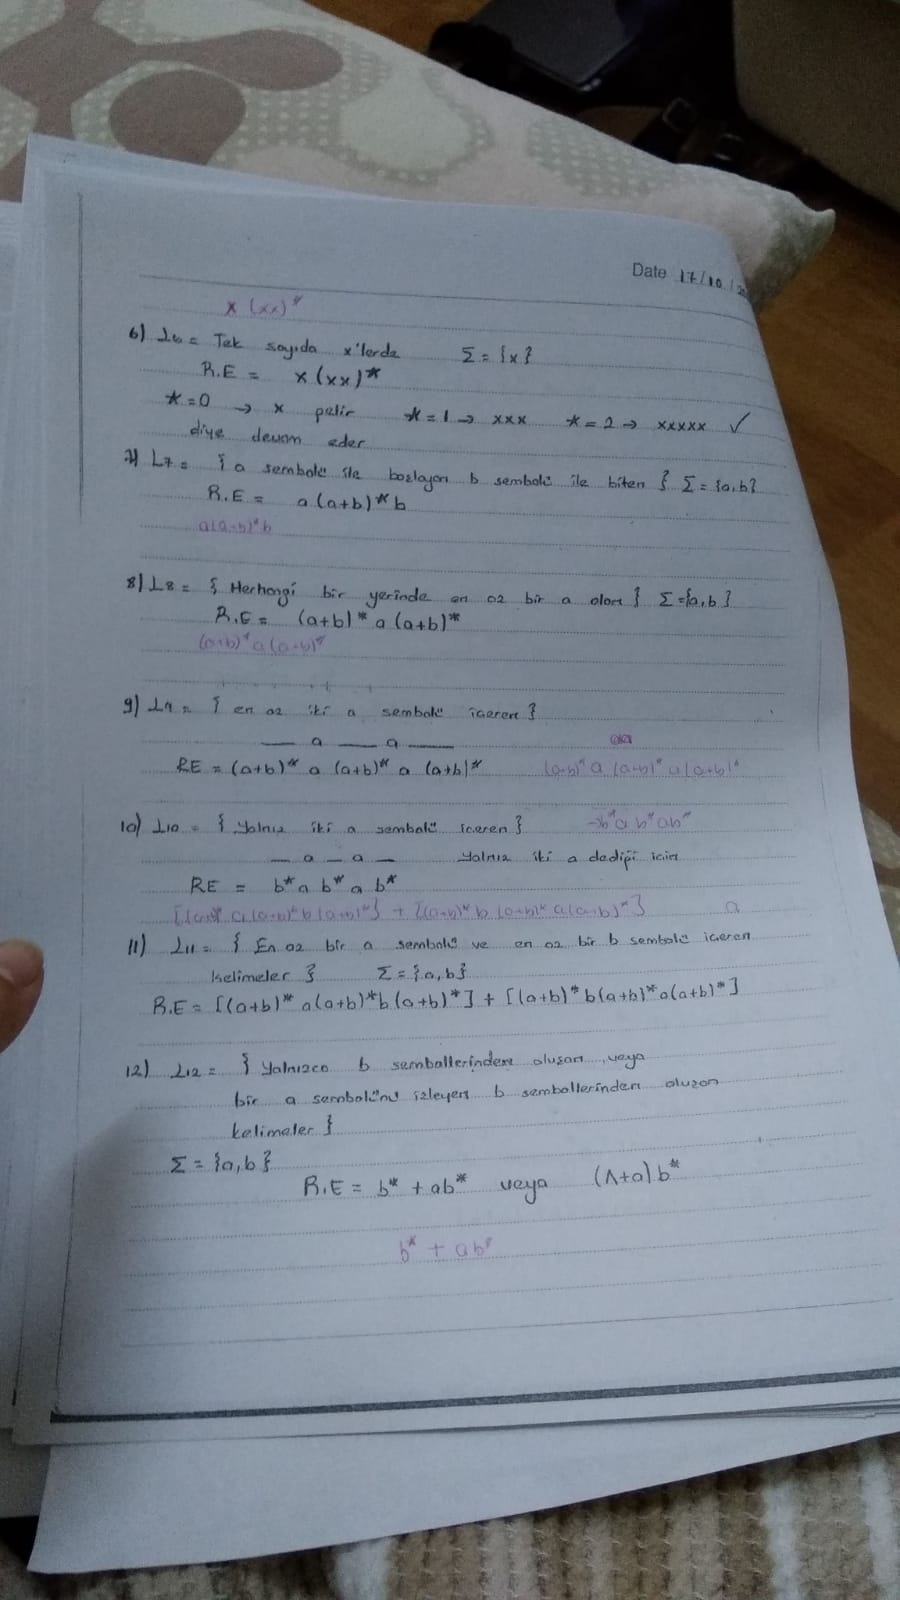 Date 17/10/20
x (xx)*
6) L6 = Tek sayıda x'lerde Σ = {x}
R.E = x(xx)*
*=0 → x gelir *=1 → xxx *=2 → xxxxx ✓
diye devam eder
7) L7 = { a sembolü ile başlayan b sembolü ile biten } Σ = {a,b}
R.E = a(a+b)*b
a(a+b)*b
8) L8 = { Herhangi bir yerinde en az bir a olan } Σ={a,b}
R.E = (a+b)* a (a+b)*
(a+b)* a (a+b)*
9) L9 = { en az iki a sembolü içeren }
__ a __ a __
RE = (a+b)* a (a+b)* a (a+b)* (a+b)* a (a+b)* a (a+b)*
10) L10 = { Yalnız iki a sembolü içeren } → b*a b*ab*
_ a _ a _ Yalnız iki a dediği için
RE = b*a b* a b*
[(a+b)* a (a+b)* b (a+b)*] + [(a+b)* b (a+b)* a(a+b)*] a
11) L11 = { En az bir a sembolü ve en az bir b sembolü içeren
kelimeler } Σ={a,b}
R.E = [(a+b)* a(a+b)*b(a+b)*] + [(a+b)*b(a+b)*a(a+b)*]
12) L12 = { Yalnızca b sembollerinden oluşan, veya
bir a sembolünü izleyen b sembollerinden oluşan
kelimeler }
Σ = {a,b}
R.E = b* + ab* veya (Λ+a)b*
b* + ab*